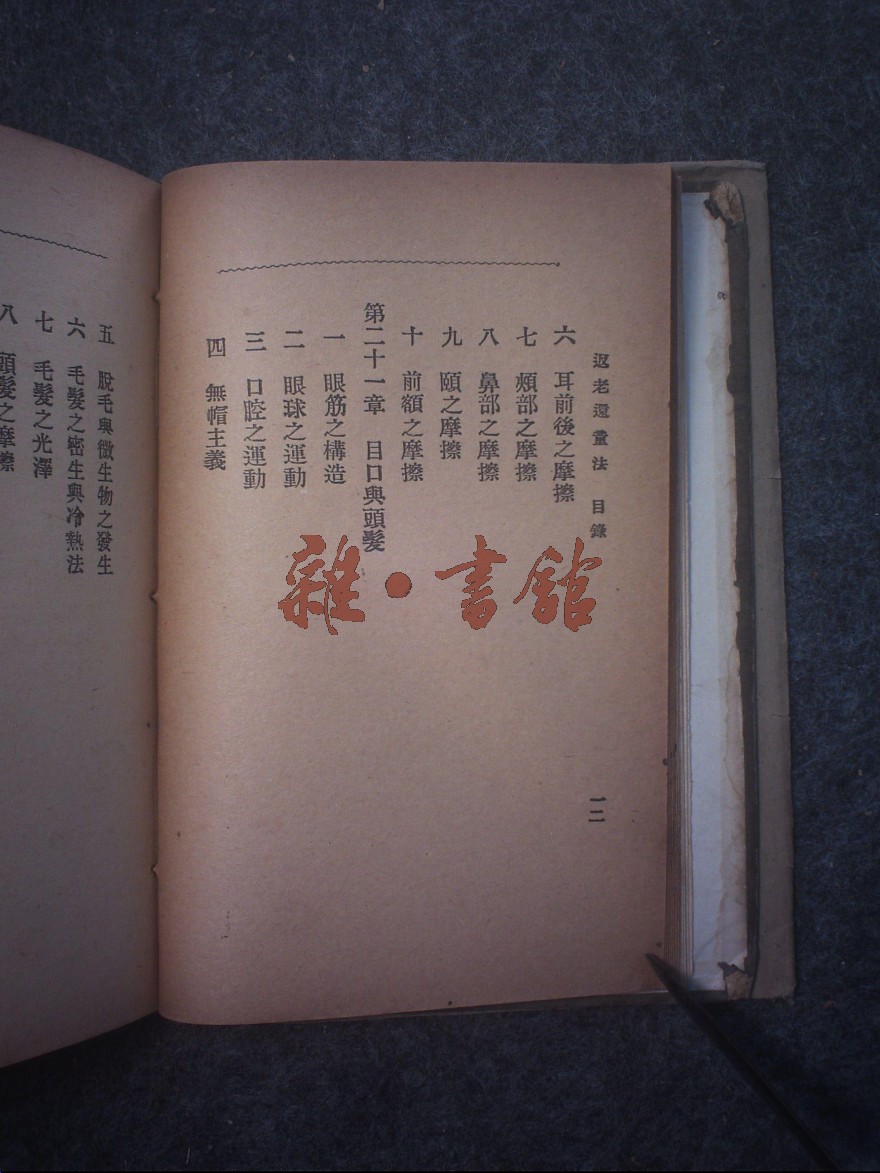 返老還童法　目錄
一二
六　耳前後之摩擦
七　頰部之摩擦
八　鼻部之摩擦
九　頤之摩擦
十　前額之摩擦
第二十一章　目口與頭髮
一　眼筋之構造
二　眼球之運動
三　口腔之運動
四　無帽主義
五　脫毛與微生物之發生
六　毛髮之密生與冷熱法
七　毛髮之光澤
八　頭髮之摩擦
雜·書館